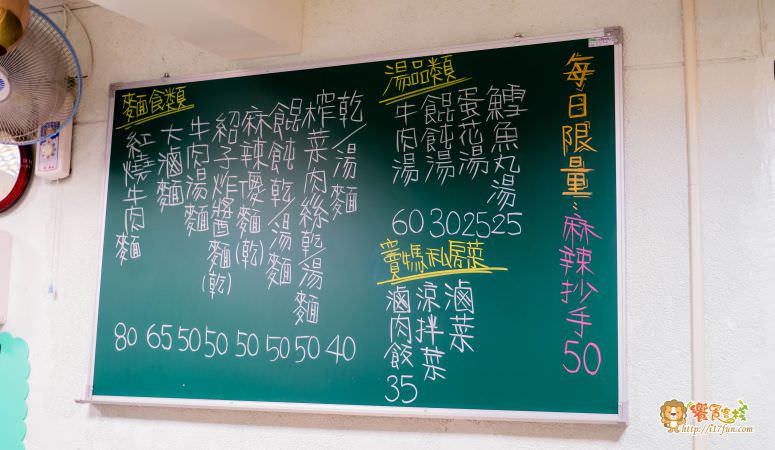 每日限量:麻辣抄手50
湯品類
鱈魚丸湯 25
蛋花湯 25
餛飩湯 30
牛肉湯 60
竇媽私房菜
滷菜
涼拌菜
滷肉飯 35
麵食類
乾/湯麵 40
榨菜肉絲乾/湯麵 50
餛飩乾/湯麵 50
麻辣燥麵(乾) 50
紹子炸醬麵(乾) 50
牛肉湯麵 50
大滷麵 65
紅燒牛肉麵 80
http://i17fun.com